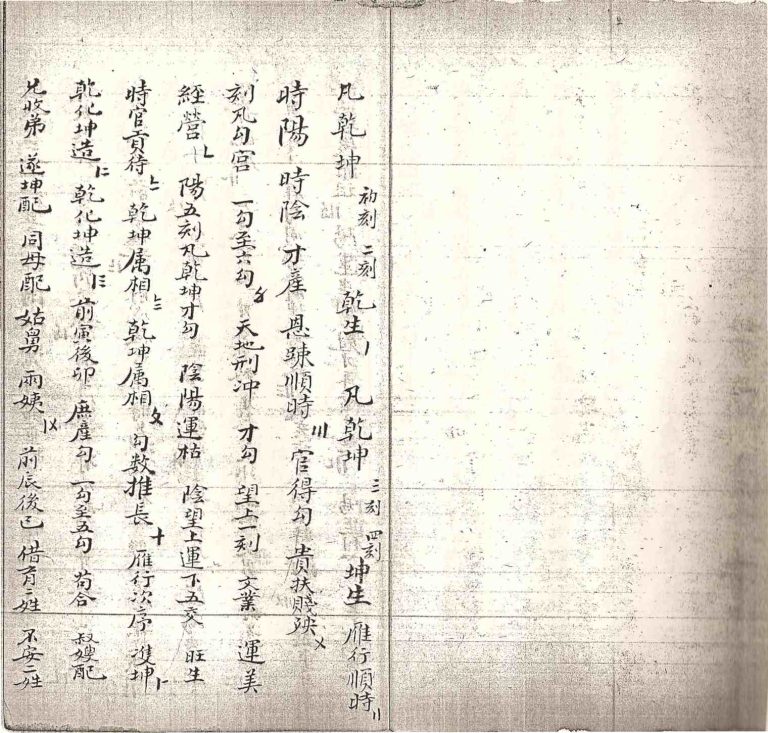 凡乾坤 初刻 二刻 乾生〡 凡乾坤 三刻 四刻 坤生 雁行順時〢
時陽 時陰 才產 恩疎順時〣 官得勾 貴扶賤殃〤
刻凡勾宮 一勾至六勾〥 天地刑冲 才勾 望上一刻 文業 運美
經營〦 陽五刻凡乾坤才勾 陰陽運枯 陰望上運下五交 旺生
時官貢待〧 乾坤属相〨 乾坤属相〩 勾数推長〸 雁行次序 雙坤
乾化坤造 乾化坤造 前寅後卯 庶產勾 一勾至五勾 苟合 叔嫂配
兄收弟 遂坤配 同母配 姑舅 兩姨 前辰後巳 借育二姓 不安二姓